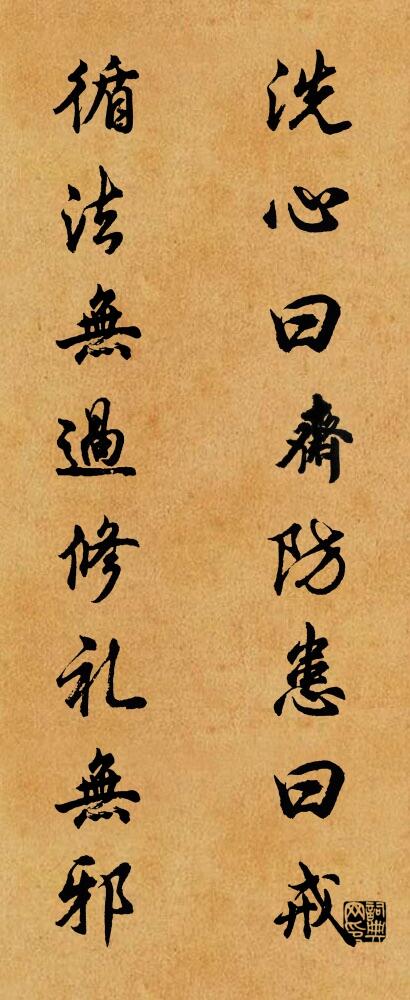 洗心曰齋防患曰戒
循法無過修礼無邪
詞典网印